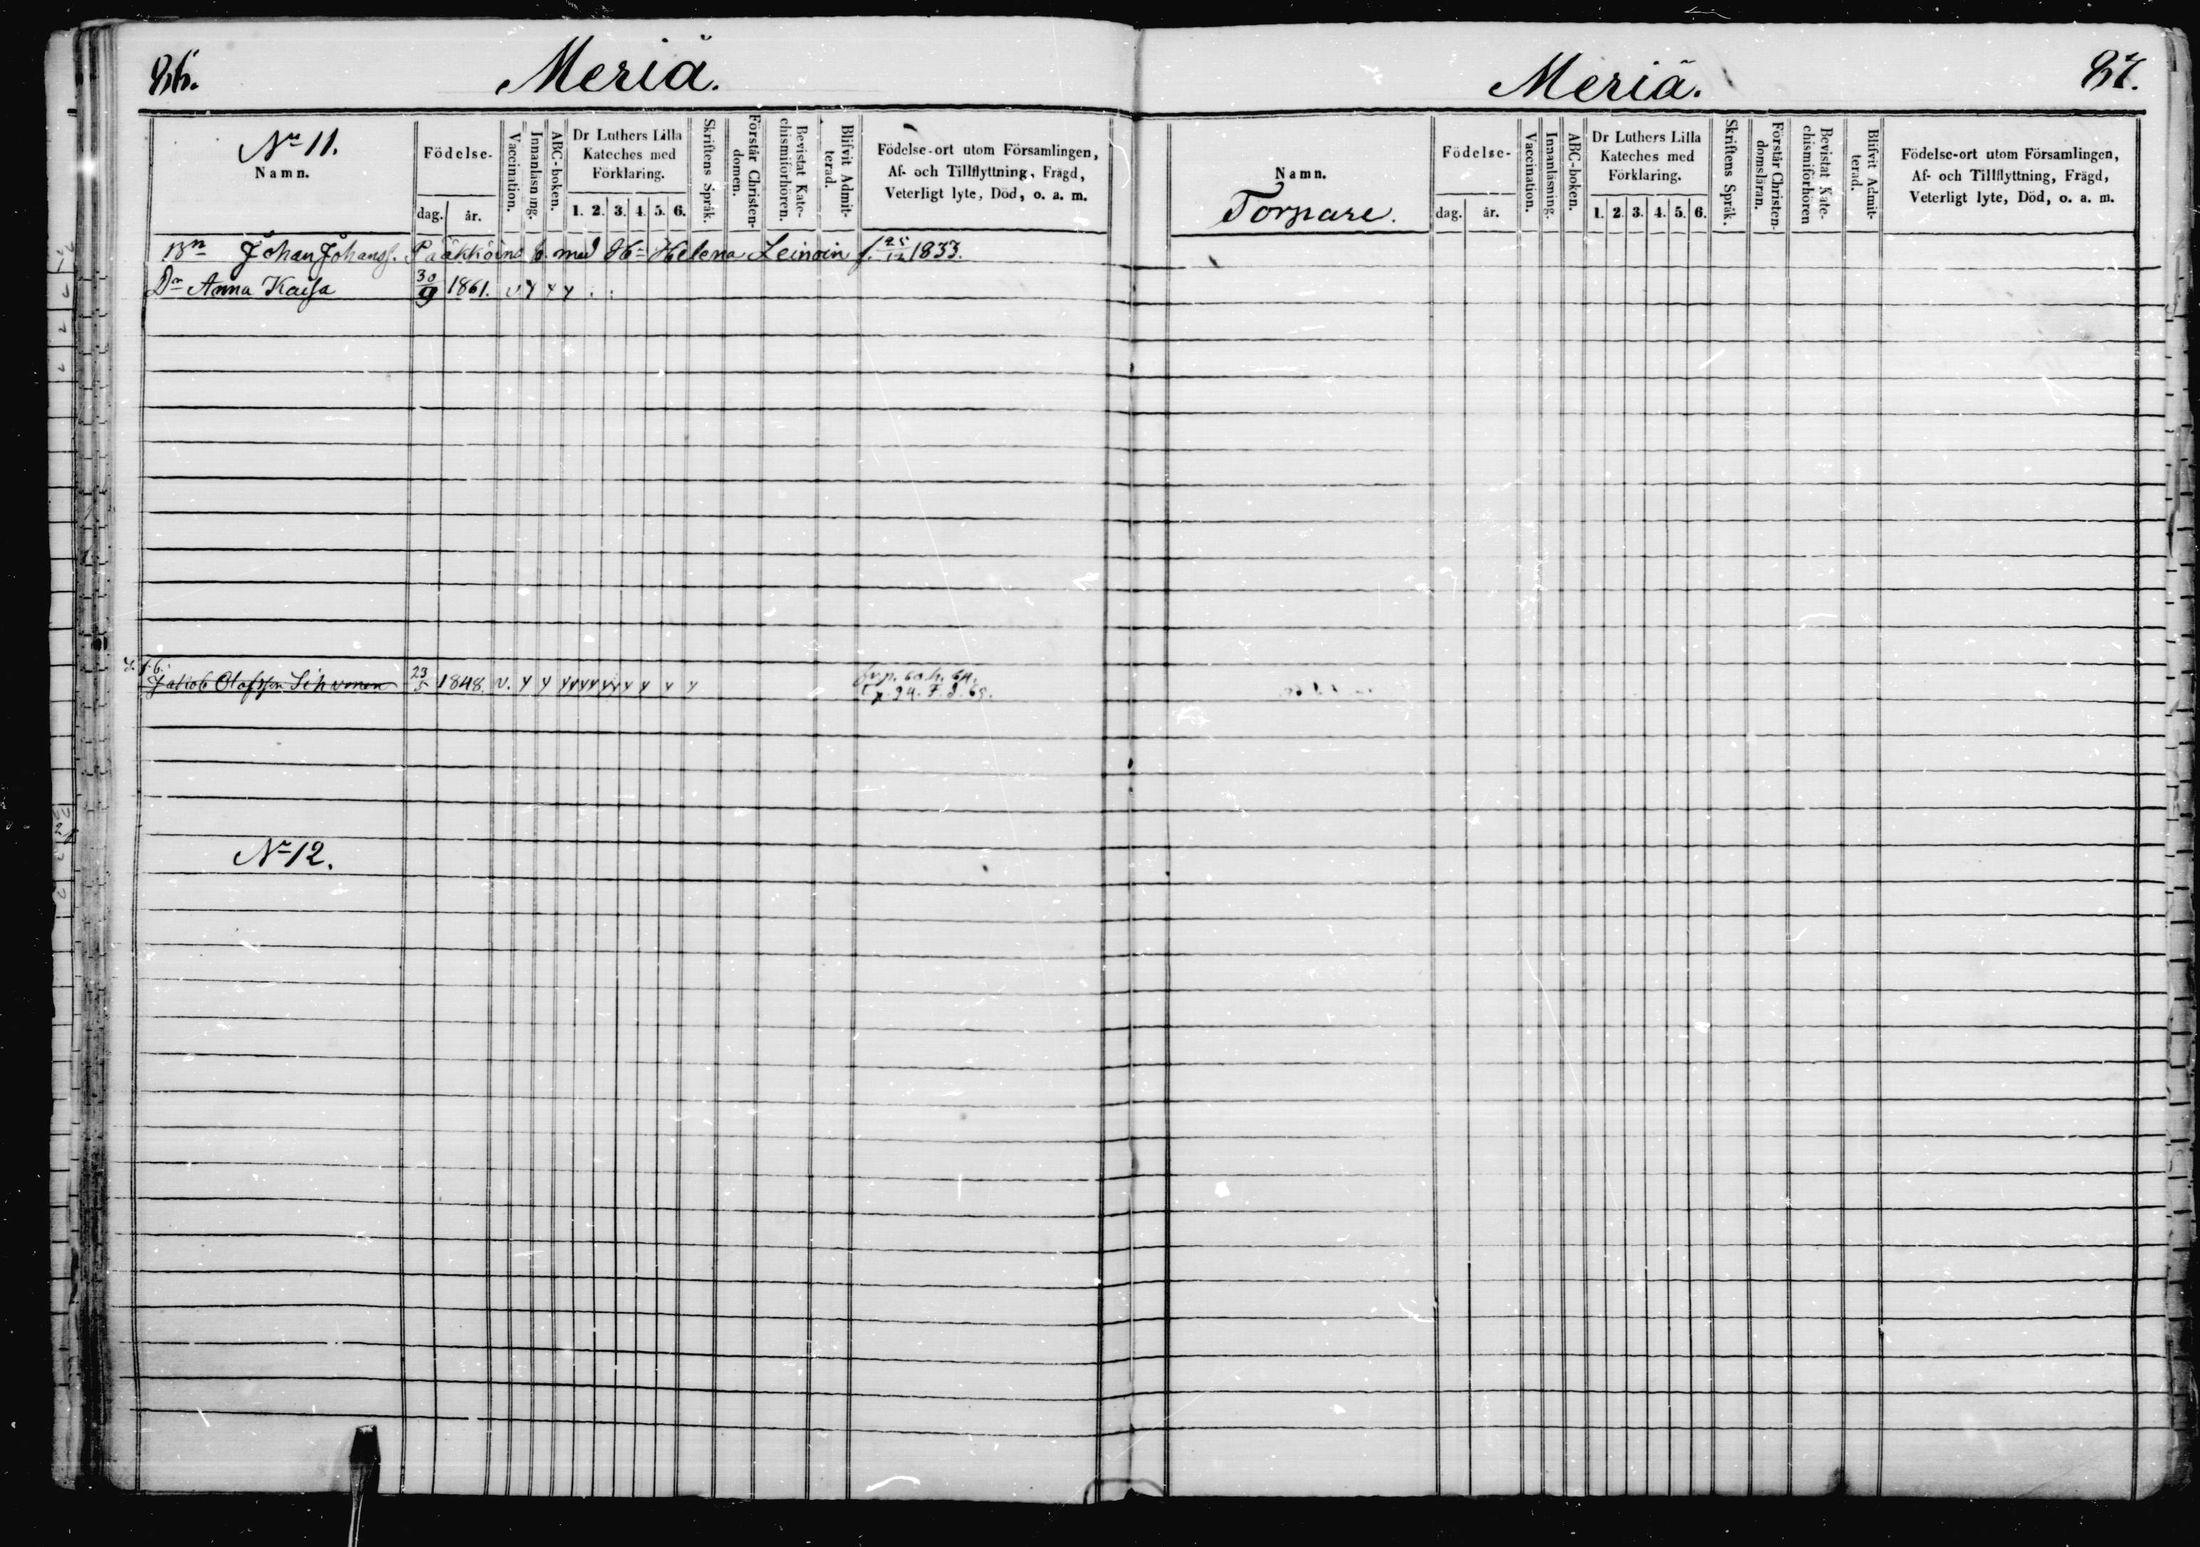 86.
Meriä.
No 11.
Namn.
Födelse-
dag.
år.
Vaccination.
Innanläsning.
ABC-boken.
Dr Luthers Lilla
Kateches med
Förklaring.
1. 2. 3. 4. 5. 6.
Skriftens Språk.
Förstår Christen-
domen.
Bevistat Kate-
chismiförhören.
Blifvit Admit-
terad.
Födelse-ort utom Församlingen,
Af- och Tillflyttning, Frägd,
Veterligt lyte, Död, o. a. m.
Bn Johan Johanss. Pääkköino med Hu Helena Leinoin f. 25/12 1833.
Dr Anna Kaisa 30/9 1861. v y y y
Jakob Olofsson Sihvonen 23/5 1848. v. y y
p. 94. F. d. 65.
No 12.
87.
Meriä.
Namn.
Torpare.
Födelse-
dag.
år.
Vaccination.
Innanläsning.
ABC-boken.
Dr Luthers Lilla
Kateches med
Förklaring.
1. 2. 3. 4. 5. 6.
Skriftens Språk.
Förstår Christen-
domsläran.
Bevistat Kate-
chismiförhören
Blifvit Admit-
terad.
Födelse-ort utom Församlingen,
Af- och Tillflyttning, Frägd,
Veterligt lyte, Död, o. a. m.